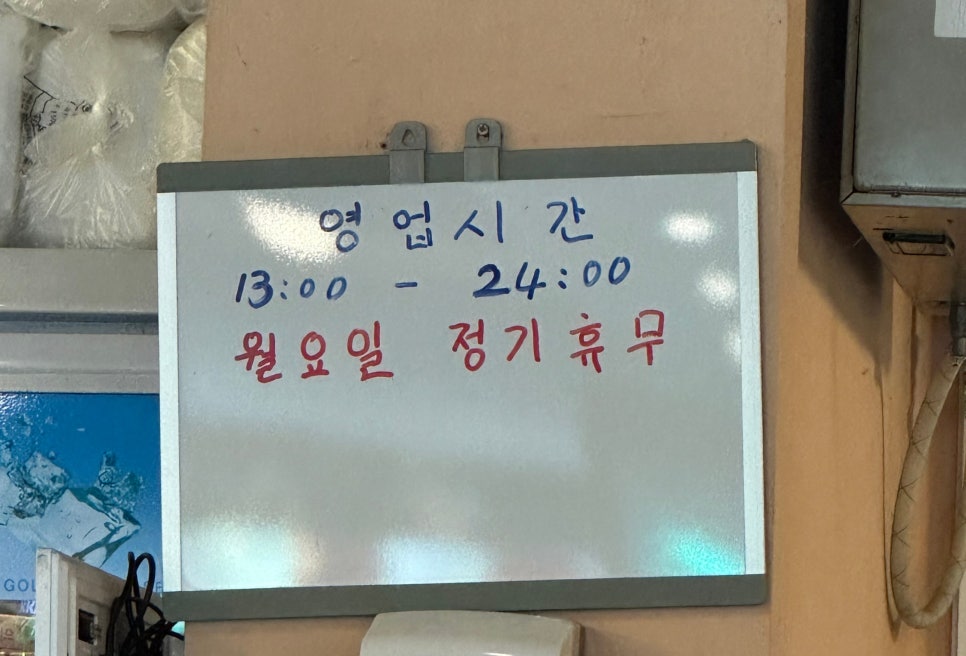 영업시간
13:00 - 24:00
월요일 정기휴무
GOL